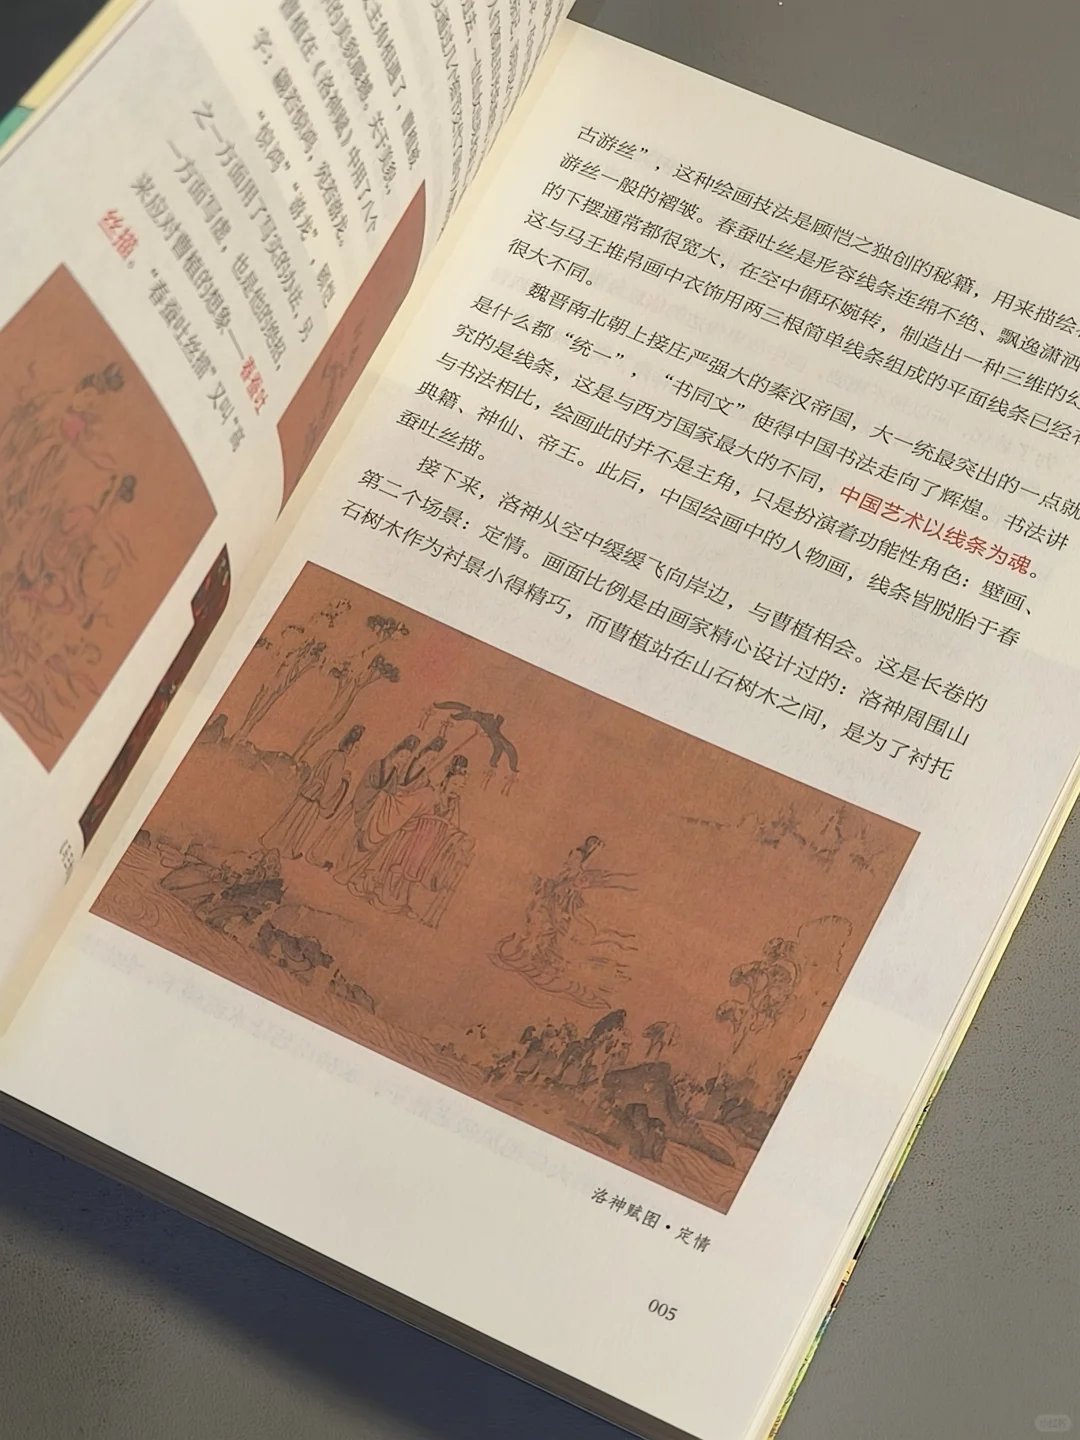 字：翩若惊鸿，宛若游龙。
“惊鸿”“游龙”，
之一方面用了写实的办法，另
一方面写虚，也是他的绝招，
来应对曹植的想象——春蚕吐
丝描。“春蚕吐丝描”又叫“高
古游丝”，这种绘画技法是顾恺之独创的秘籍，用来描绘
游丝一般的褶皱。春蚕吐丝是形容线条连绵不绝、飘逸潇洒
的下摆通常都很宽大，在空中循环婉转，制造出一种三维的
这与马王堆帛画中衣饰用两三根简单线条组成的平面线条已经有
很大不同。
魏晋南北朝上接庄严强大的秦汉帝国，大一统最突出的一点就
是什么都“统一”，“书同文”使得中国书法走向了辉煌。书法讲
究的是线条，这是与西方国家最大的不同，中国艺术以线条为魂。
与书法相比，绘画此时并不是主角，只是扮演着功能性角色：壁画、
典籍、神仙、帝王。此后，中国绘画中的人物画，线条皆脱胎于春
蚕吐丝描。
接下来，洛神从空中缓缓飞向岸边，与曹植相会。这是长卷的
第二个场景：定情。画面比例是由画家精心设计过的：洛神周围山
石树木作为衬景小得精巧，而曹植站在山石树木之间，是为了衬托
洛神赋图·定情
005